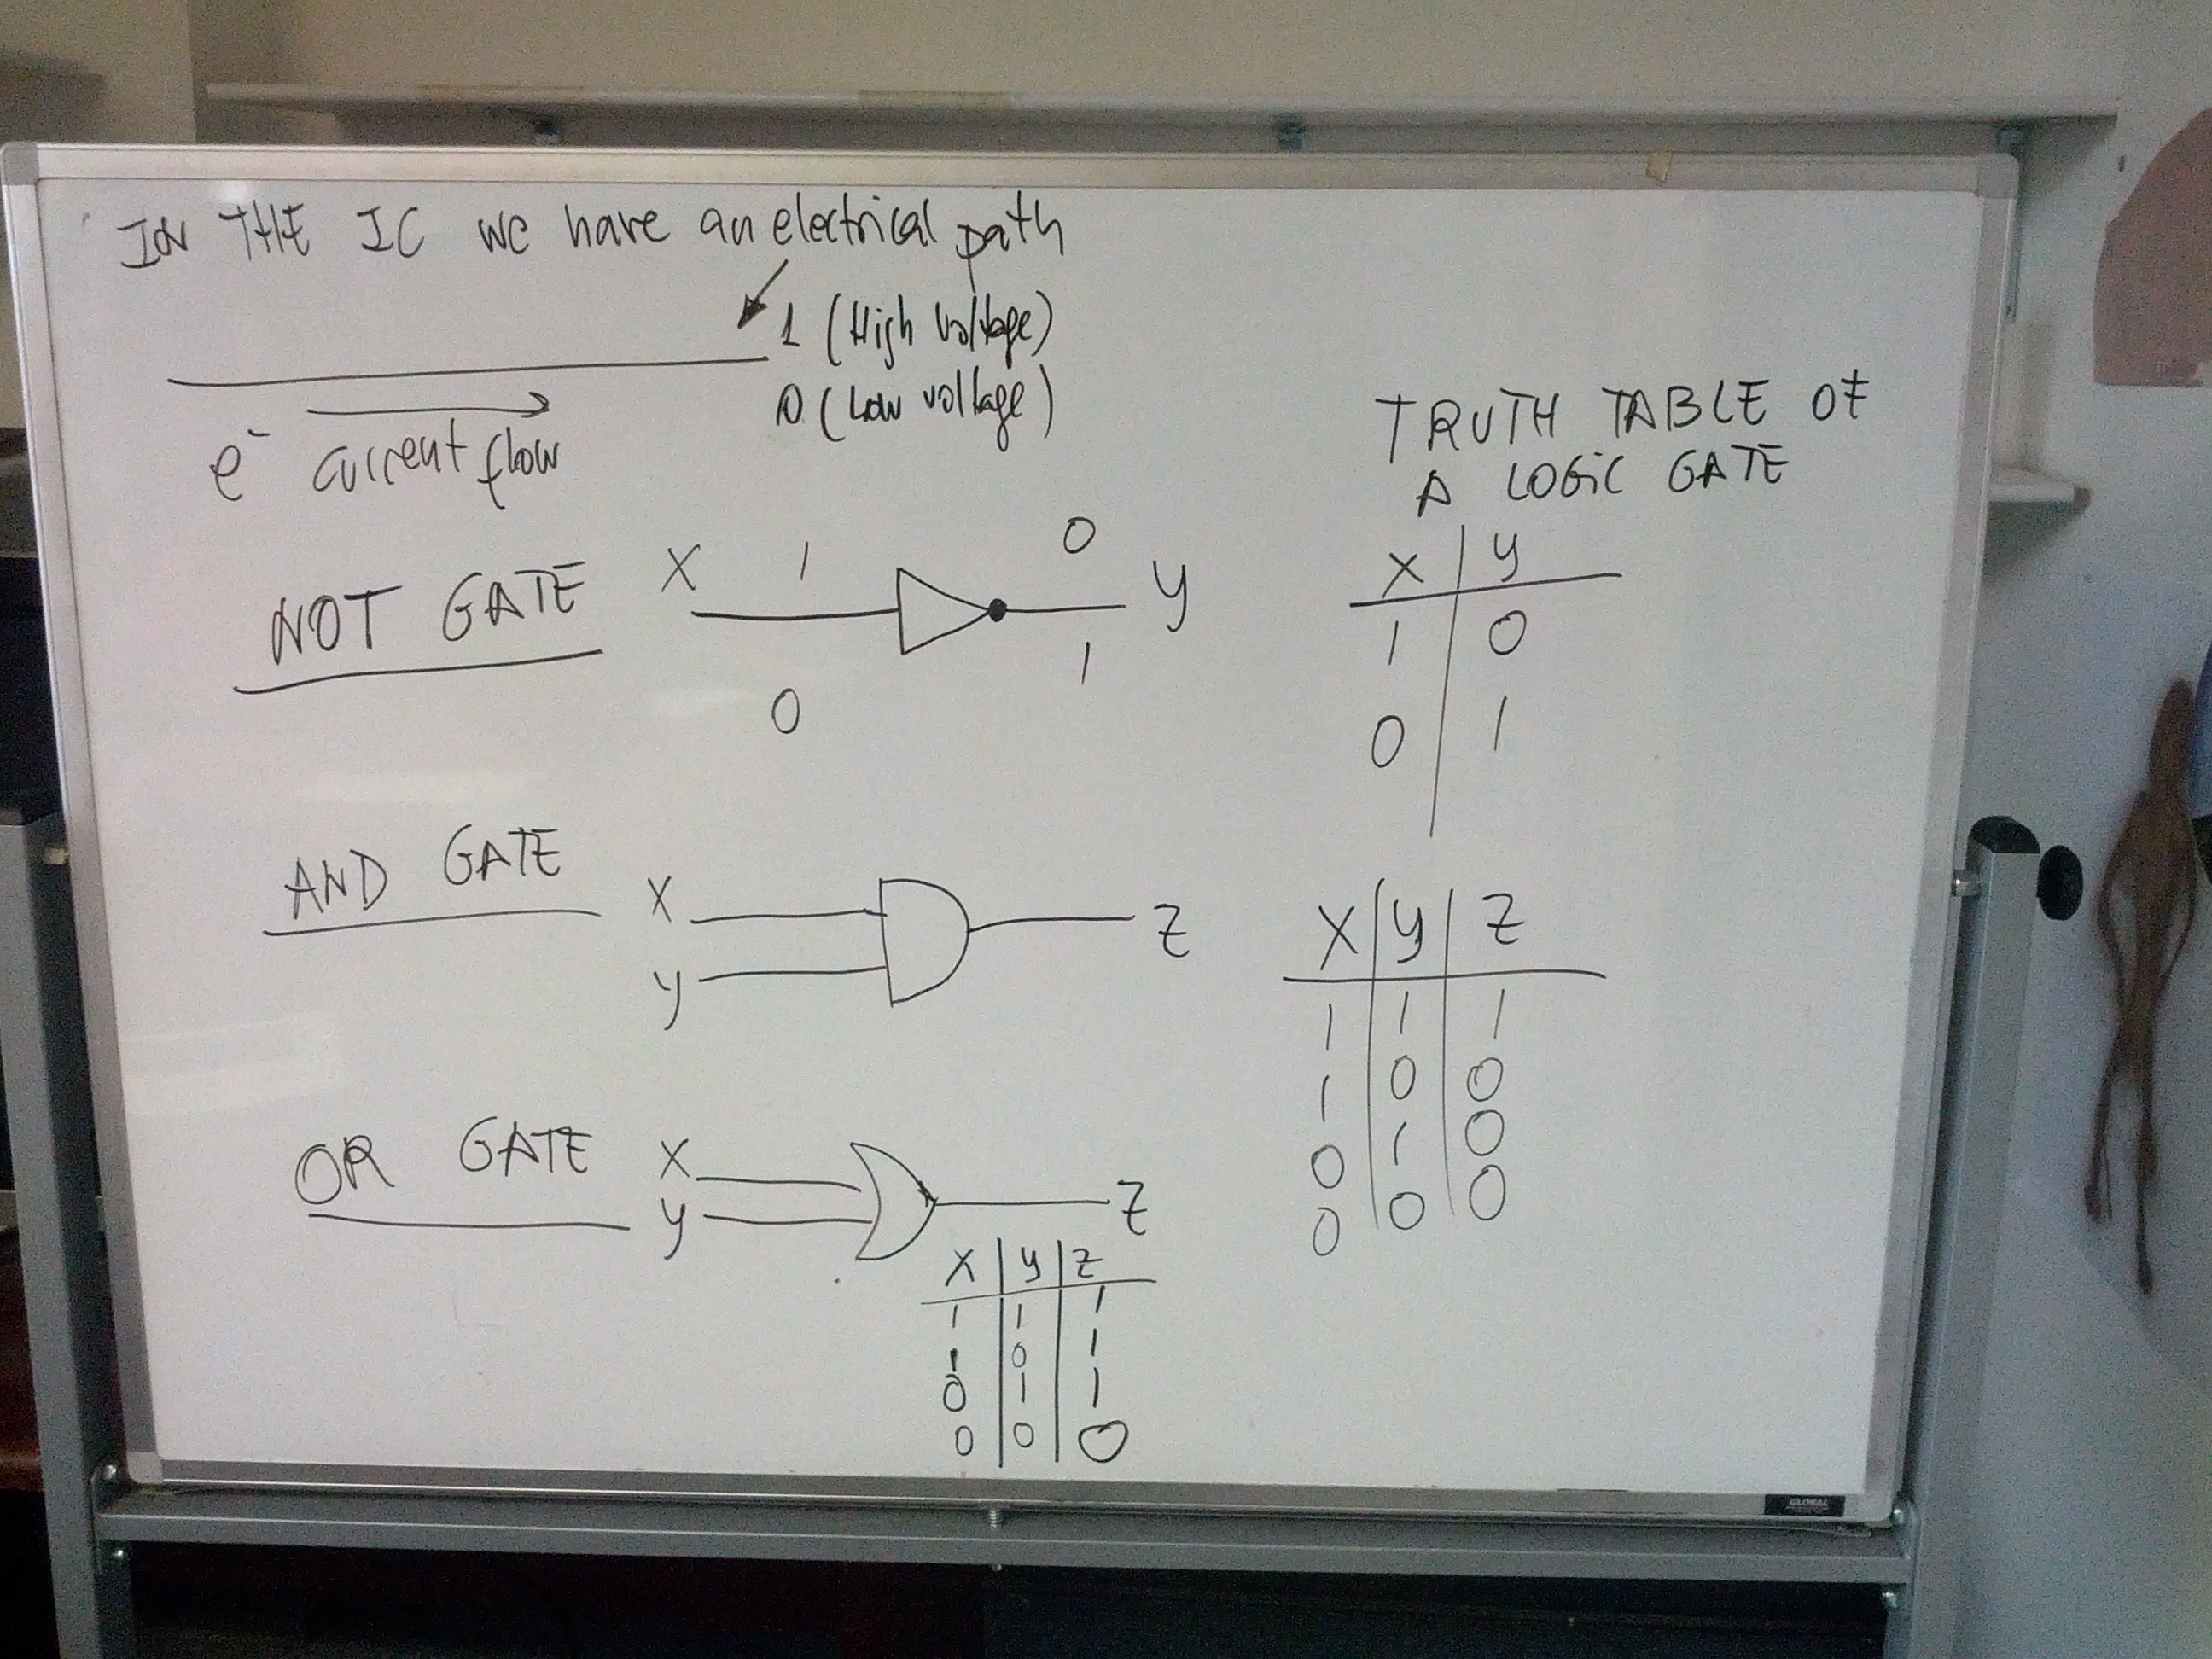 IN THE IC we have an electrical path
1 (High voltage)
0 (Low voltage)
e⁻ current flow
TRUTH TABLE OF
A LOGIC GATE
NOT GATE X 1 0 y
0 1
X y
1 0
0 1
AND GATE X Z
y
X y Z
1 1 1
1 0 0
0 1 0
0 0 0
OR GATE X Z
y
X y Z
1 1 1
1 0 1
0 1 1
0 0 0
GLOBAL